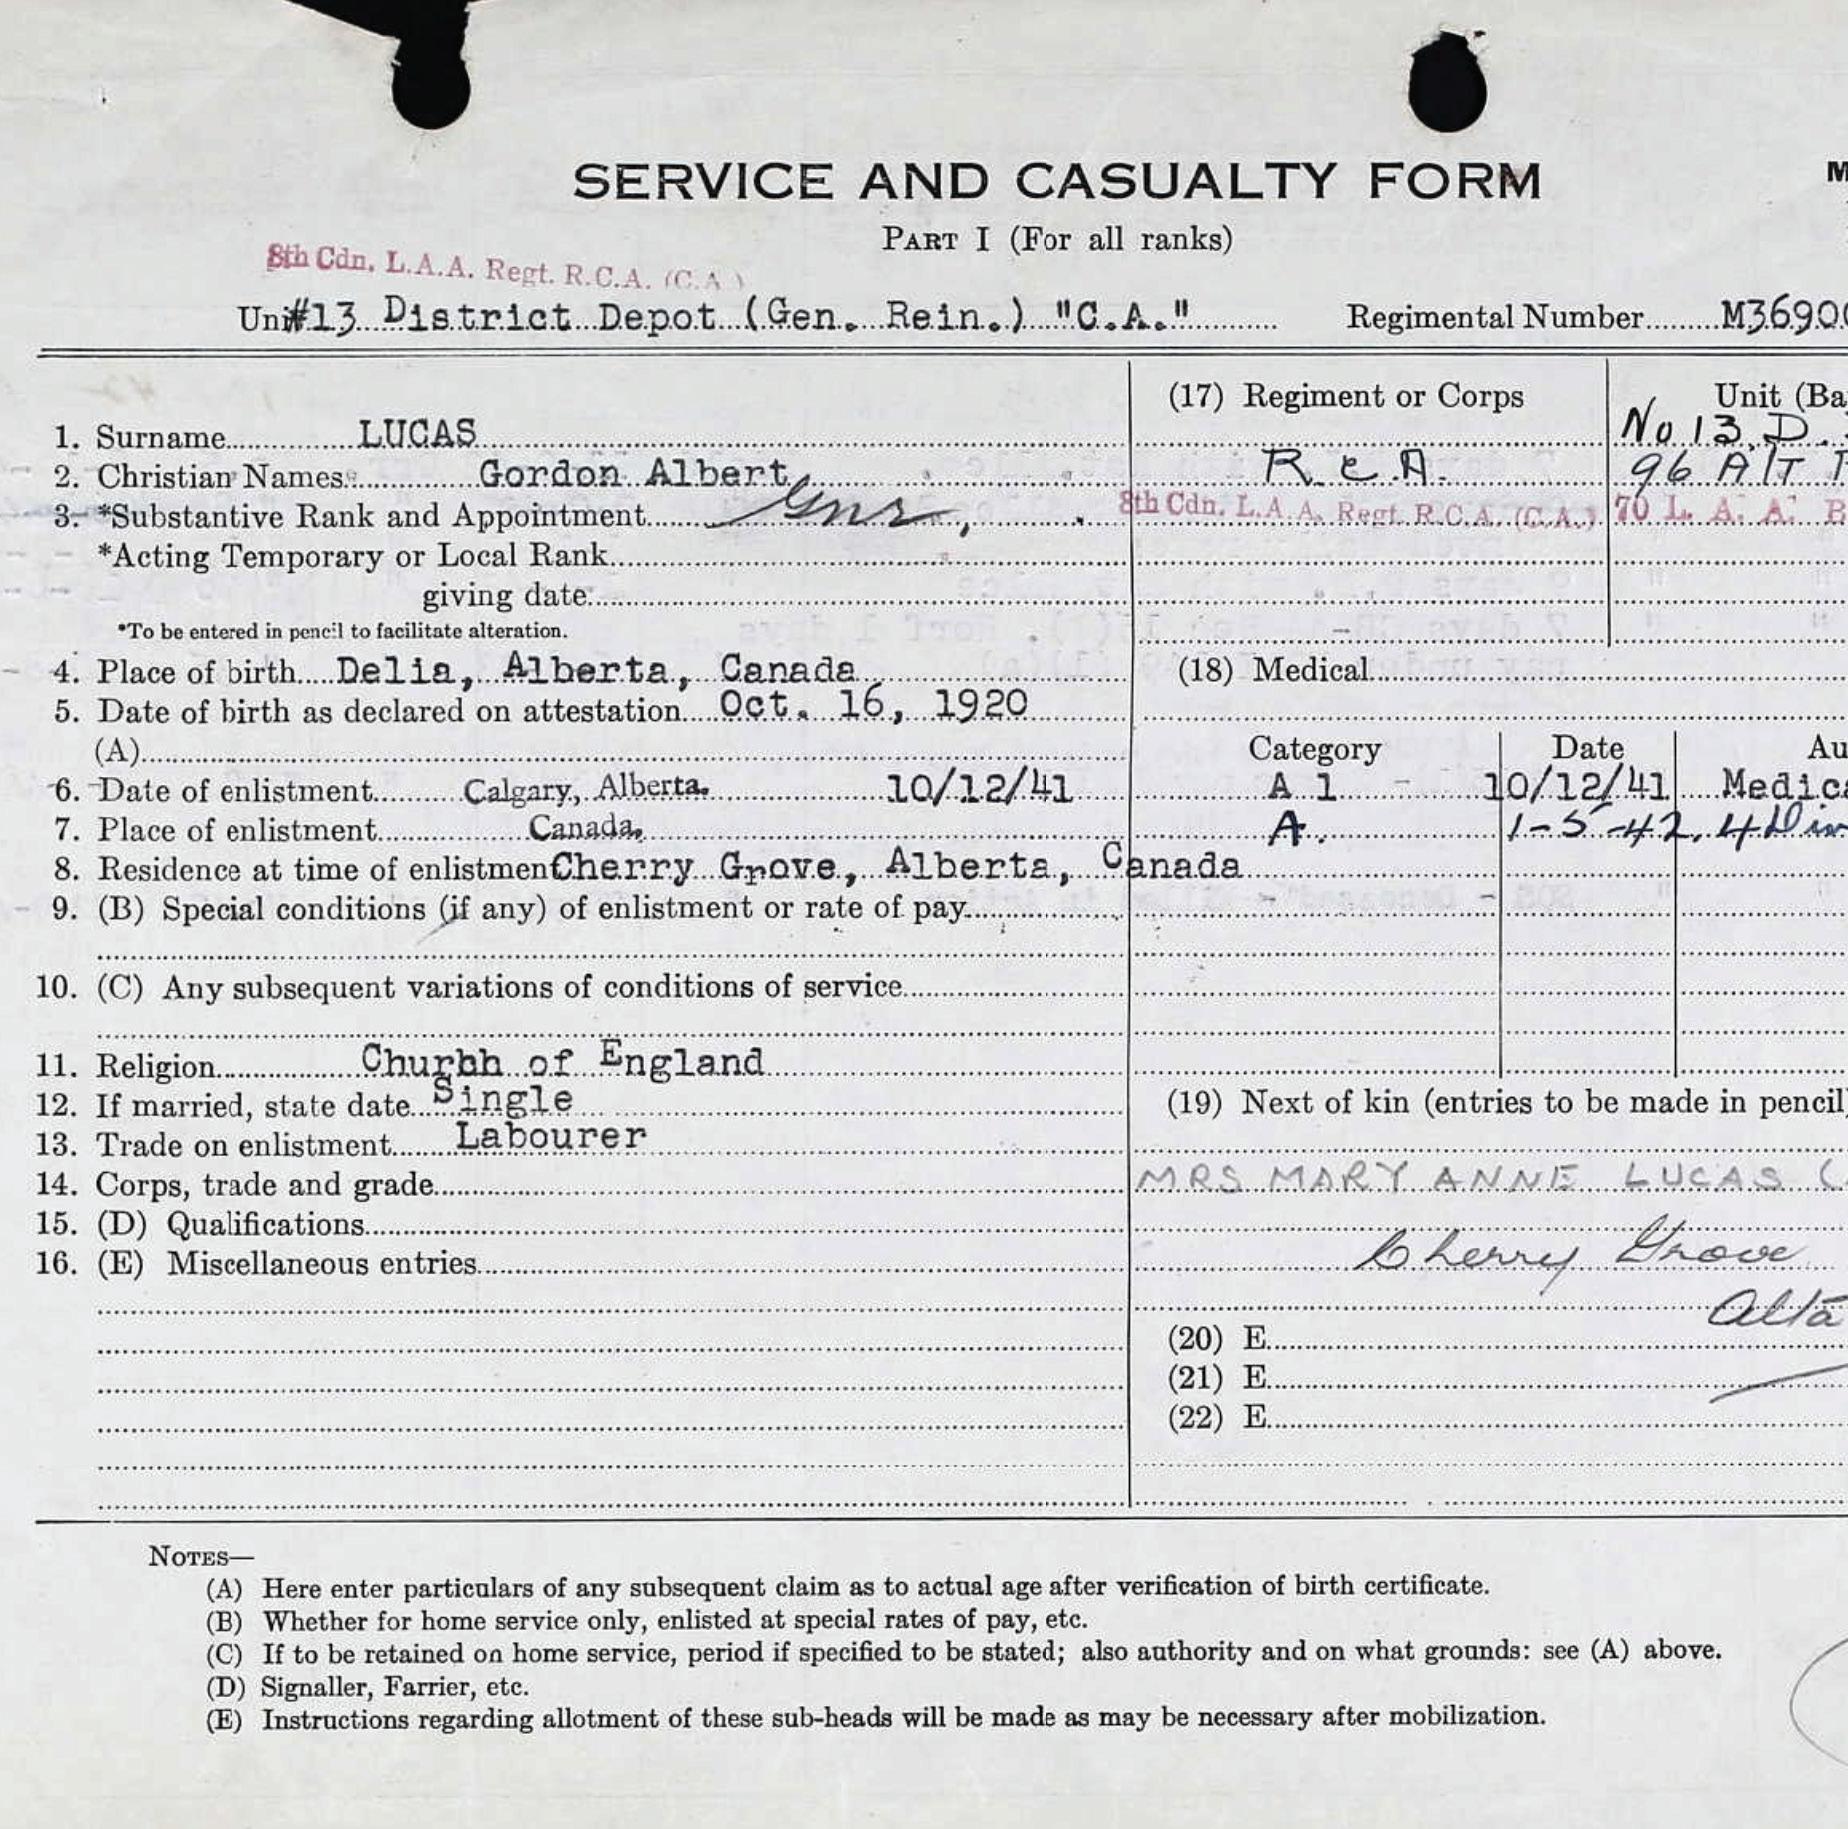 SERVICE AND CASUALTY FORM
M
PART I (For all ranks)
8th Cdn. L.A.A. Regt. R.C.A. (C.A.)
Unit #13 District Depot (Gen. Rein.) "C.A." Regimental Number M3690
1. Surname LUCAS
2. Christian Names Gordon Albert
3. *Substantive Rank and Appointment Gnr,
*Acting Temporary or Local Rank
giving date
*To be entered in pencil to facilitate alteration.
4. Place of birth Delia, Alberta, Canada
5. Date of birth as declared on attestation Oct. 16, 1920
(A)
6. Date of enlistment Calgary, Alberta. 10/12/41
7. Place of enlistment Canada.
8. Residence at time of enlistment Cherry Grove, Alberta, Canada
9. (B) Special conditions (if any) of enlistment or rate of pay
10. (C) Any subsequent variations of conditions of service
11. Religion Churbh of England
12. If married, state date Single
13. Trade on enlistment Labourer
14. Corps, trade and grade
15. (D) Qualifications
16. (E) Miscellaneous entries
(17) Regiment or Corps Unit (Ba
No 13 D.
R.C.A. 96 A/T
8th Cdn. L.A.A. Regt. R.C.A. (C.A.) 70 L. A. A. B
(18) Medical
Category Date Au
A 1 - 10/12/41 Medic
A. 1-5-42. 4 Div
(19) Next of kin (entries to be made in pencil)
MRS MARY ANNE LUCAS (
Cherry Grove
Alta
(20) E
(21) E
(22) E
NOTES—
(A) Here enter particulars of any subsequent claim as to actual age after verification of birth certificate.
(B) Whether for home service only, enlisted at special rates of pay, etc.
(C) If to be retained on home service, period if specified to be stated; also authority and on what grounds: see (A) above.
(D) Signaller, Farrier, etc.
(E) Instructions regarding allotment of these sub-heads will be made as may be necessary after mobilization.